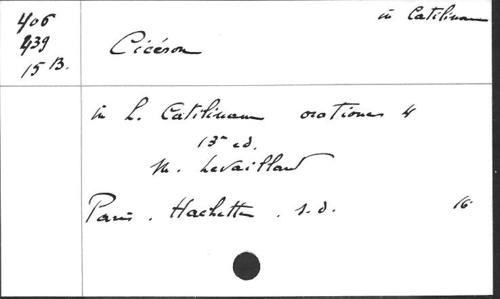 406
439
15 B.
in Catilinam
Cicéron
in L. Catilinam orationes 4
13e ed.
M. Levaillant
Paris. Hachette. s.d. 16